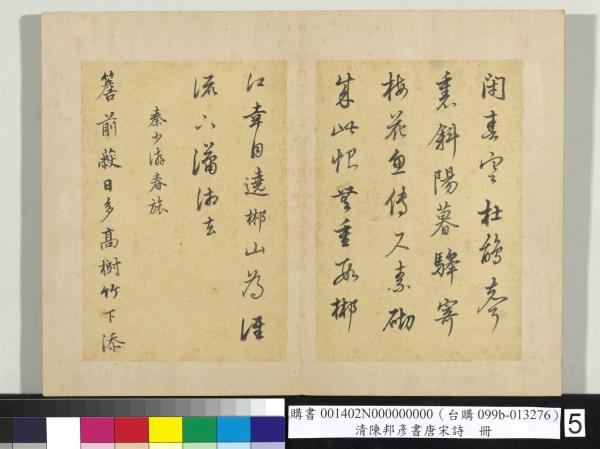 閉春寒杜鵑聲
裏斜陽暮驛寄
梅花魚傳尺素砌
成此恨無重數郴
江幸自遶郴山為誰
流下瀟湘去
秦少游春旅
簷前蔽日多高樹竹下添
購書 001402N000000000 (台購 099b-013276)
清陳邦彥書唐宋詩 冊
5